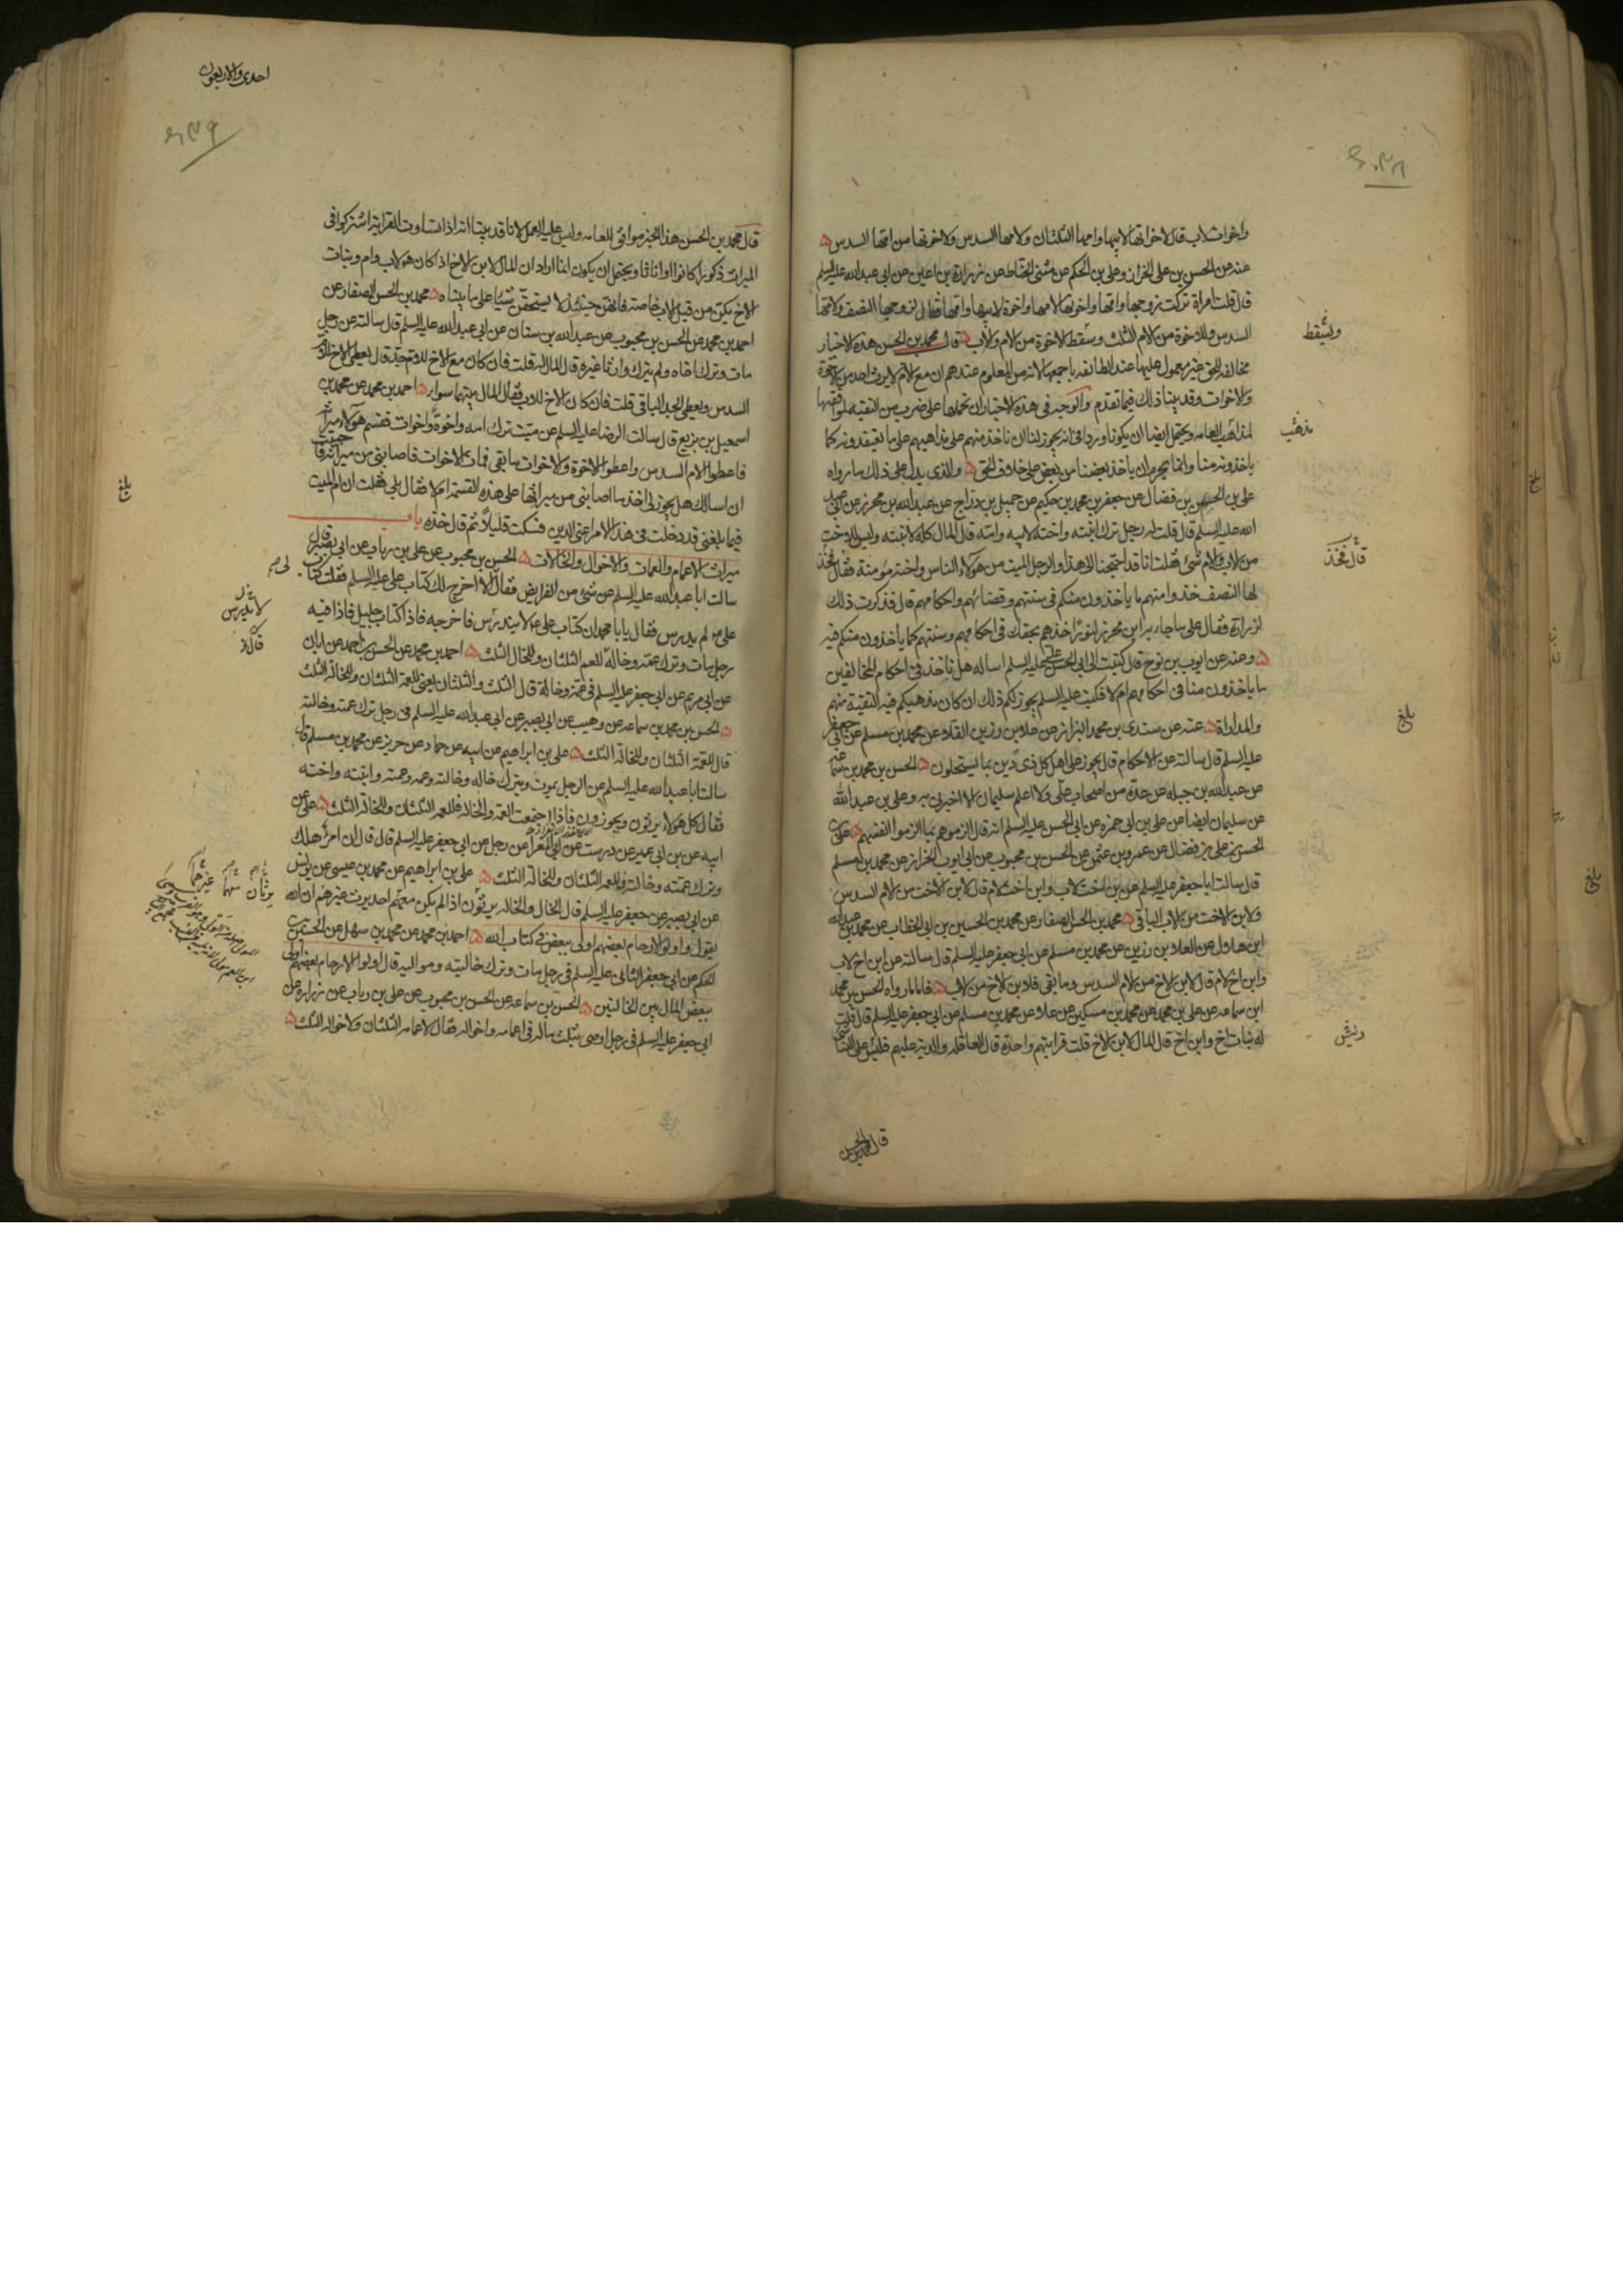 واخوات لاب قال لاخواتها لابيها وامها الثلثان ولامها السدس ولاخوتها من امها السدس
عنه عن الحسن بن على الخزاز وعلى بن الحكم عن مثنى الحناط عن زرارة بن اعين عن ابى عبد الله عليه السلم
قال قلت امراة تركت زوجها وامها واخوتها لامها واخوة لابيها وامها فقال لزوجها النصف ولامها
السدس وللاخوة من الام الثلث وسقط الاخوة من الام والاب قال محمد بن الحسن هذه الاخبار
مخالفة للحق غير معمول عليها عند الطائفة باجمعها لانه من المعلوم عندهم ان مع الام لا يرث احد من الاخوة
والاخوات وقد بينا ذلك فيما تقدم والوجه فى هذه الاخبار ان نحملها على ضرب من التقية لموافقتها
لمذاهب العامة ويحتمل ايضا ان يكونا وردا فى انه يجوز لنا ان ناخذ منهم على مذاهبهم على ما يعتقدونه كما
ياخذونه منا وانما يحرم ان ياخذ بعضنا من بعض على خلاف الحق والذى يدل على ذلك ما رواه
على بن الحسن بن فضال عن جعفر بن محمد بن حكيم عن جميل بن دراج عن عبد الله بن محرز عن ابى عبد
الله عليه السلم قال قلت له رجل ترك ابنته واخته لابيه وامه قال المال كله لابنته وليس للاخت
من الاب والام شئ فقلت انا قد احتجنا الى هذا والرجل الميت من هؤلاء الناس واخته مؤمنة فقال فخذ
لها النصف خذوا منهم ما ياخذون منكم فى سنتهم وقضائهم واحكامهم قال فذكرت ذلك
لزرارة فقال على ما جاء به ابن محرز لنورا خذهم بحقك فى احكامهم وسنتهم كما ياخذون منكم فيه
وعنه عن ايوب بن نوح قال كتبت الى ابى الحسن عليه السلم اساله هل ناخذ فى احكام المخالفين
ما ياخذون منا فى احكامهم ام لا فكتب عليه السلم يجوز لكم ذلك ان كان مذهبكم فيه التقية منهم
والمداراة عنه عن سندى بن محمد البزاز عن علا بن رزين القلاء عن محمد بن مسلم عن ابى جعفر
عليه السلم قال سالته عن الاحكام قال يجوز على اهل كل ذى دين بما يستحلون الحسن بن محمد بن سماعة
عن عبد الله بن جبلة عن عدة من اصحاب على ولا اعلم سليمان الا اخبرنى به وعلى بن عبد الله
عن سليمان ايضا عن على بن ابى حمزه عن ابى الحسن عليه السلم انه قال الزموهم بما الزموا انفسهم على بن
الحسن بن على بن فضال عن عمرو بن عثمن عن الحسن بن محبوب عن ابى ايوب الخزاز عن محمد بن مسلم
قال سالت ابا جعفر عليه السلم عن بن اخت لاب وابن اخت لام قال لابن الاخت من الام السدس
ولابن الاخت من الاب الباقى محمد بن الحسن الصفار عن محمد بن الحسين بن ابى الخطاب عن محمد بن عبد الله
ابن هلال عن العلا بن رزين عن محمد بن مسلم عن ابى جعفر عليه السلم قال سالته عن ابن اخ لاب
وابن اخ لام قال لابن الاخ من الام السدس وما بقى فلابن الاخ من الاب فاما ما رواه الحسن بن محمد
ابن سماعة عن على بن محمد عن محمد بن مسكين عن علا عن محمد بن مسلم عن ابى جعفر عليه السلم قال قلت
له بنات اخ وابن اخ قال المال لابن الاخ قلت قرابتهم واحدة قال العاقلة والدية عليهم فليس على النساء شئ
قال محمد بن الحسن
ويسقط
مذهب
قال فخذ
بلغ
وليس
احدى والاربعون
قال محمد بن الحسن هذا الخبر موافق للعامه وليس عليه العمل لانا قد بينا انه اذا تساوت القرابة اشتركوا فى
الميراث ذكورا كانوا او اناثا ويحتمل ان يكون انما اراد ان المال لابن الاخ اذا كان هو لاب وام وبنات
الاخ يكن من قبل الاب خاصة فانهن حينئذ لا يستحقن شيئا على ما بيناه محمد بن الحسن الصفار عن
احمد بن محمد عن الحسن بن محبوب عن عبد الله بن سنان عن ابى عبد الله عليه السلم قال سالته عن رجل
مات وترك اخاه ولم يترك وارثا غيره قال المال له قلت فان كان مع الاخ للام جد قال يعطى الاخ للام
السدس ويعطى الجد الباقى قلت فان كان الاخ للاب فقال المال بينهما سواء احمد بن محمد عن محمد بن
اسمعيل بن بزيع قال سالت الرضا عليه السلم عن ميت ترك امه واخوة واخوات فقسم هؤلاء ميراثه
فاعطوا الام السدس واعطوا الاخوة والاخوات ما بقى فمات الاخوات فاصابنى من ميراثه فاحببت
ان اسالك هل يجوز لى اخذ ما اصابنى من ميراثها على هذه القسمة ام لا فقال بلى فقلت ان ام الميت
فيما بلغنى قد دخلت فى هذا الامر اعنى الدين فسكت قليلا ثم قال خذه باب
ميراث الاعمام والعمات والاخوال والخالات الحسن بن محبوب عن على بن رياب عن ابى بصير قال
سالت ابا عبد الله عليه السلم عن شئ من الفرايض فقال الا اخرج لك كتاب على عليه السلم فقلت كتاب
على لم يدرس فقال يا با محمد ان كتاب على لا يندرس فاخرجه فاذا كتاب جليل فاذا فيه
رجل مات وترك عمه وخاله للعم الثلثان وللخال الثلث احمد بن محمد عن الحسن بن احمد عن ابان
عن ابى مريم عن ابى جعفر عليه السلم فى عمة وخالة قال الثلث والثلثان يعنى للعمة الثلثان وللخالة الثلث
الحسن بن محمد بن سماعة عن وهيب عن ابى بصير عن ابى عبد الله عليه السلم فى رجل ترك عمته وخالته
قال للعمة الثلثان وللخالة الثلث على بن ابراهيم عن ابيه عن حماد عن حريز عن محمد بن مسلم قال
سالت ابا عبد الله عليه السلم عن الرجل يموت ويترك خاله وخالته وعمه وعمته وابنته واخته
فقال كل هؤلاء يرثون ويحوزون فاذا اجتمعت العمة والخالة فللعمة الثلثان وللخالة الثلث على عن
ابيه عن بن ابى عمير عن درست عن ابى المعزا عن رجل عن ابى جعفر عليه السلم قال قال ان امرؤ هلك
وترك عمته وخالته فللعمة الثلثان وللخالة الثلث على بن ابراهيم عن محمد بن عيسى عن يونس
عن ابى بصير عن جعفر عليه السلم قال الخال والخالة يرثون اذا لم يكن معهم احد يرث غيرهم ان الله
يقول واولوا الارحام بعضهم اولى ببعض فى كتاب الله احمد بن محمد عن محمد بن سهل عن الحسين بن
الحكم عن ابى جعفر الثانى عليه السلم فى رجل مات وترك خالتيه ومواليه قال اولوا الارحام بعضهم اولى
ببعض المال بين الخالتين الحسن بن سماعة عن الحسن بن محبوب عن على بن رياب عن زرارة عن
ابى جعفر عليه السلم فى رجل اوصى بثلث ماله فى اعمامه واخواله فقال لاعمامه الثلثان ولاخواله الثلث
بلغ
لا يندرس
يرثان
غيرهما